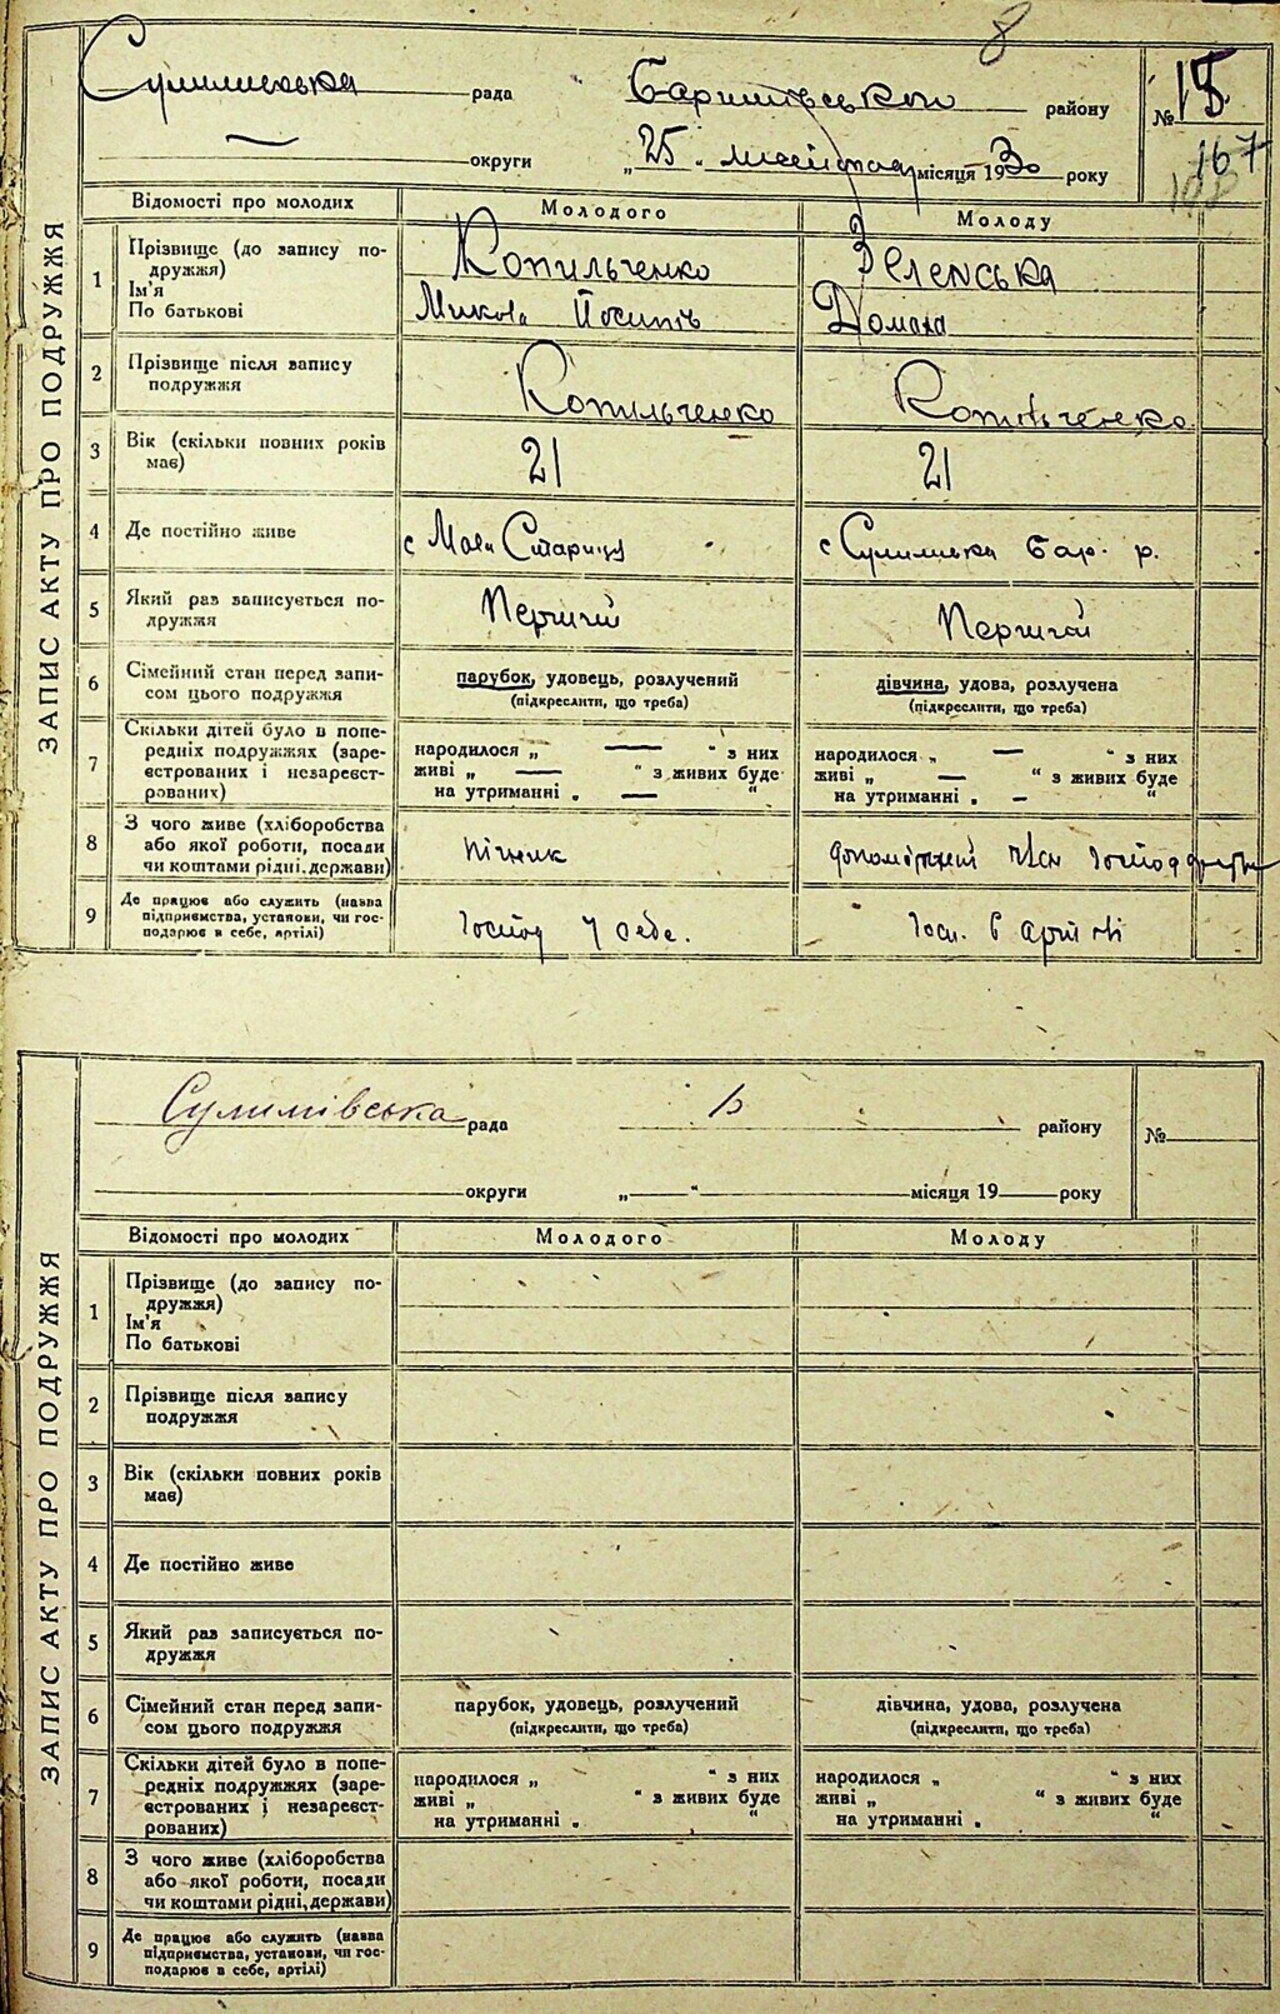 8
Сулимівська рада Баришівського району № 15
округи „25. листопада місяця 1930 року 167
108
ЗАПИС АКТУ ПРО ПОДРУЖЖЯ
Відомості про молодих Молодого Молоду
1 Прізвище (до запису по-
дружжя)
Ім'я
По батькові
Копильченко Зеленська
Микола Йосипів Домаха
2 Прізвище після запису
подружжя
Копильченко Копильченко
3 Вік (скільки повних років
має)
21 21
4 Де постійно живе с Мала Стариця с Сулимівка Бар. р.
5 Який раз записується по-
дружжя
Перший Перший
6 Сімейний стан перед запи-
сом цього подружжя
парубок, удовець, розлучений дівчина, удова, розлучена
(підкреслити, що треба) (підкреслити, що треба)
7 Скільки дітей було в попе-
редніх подружжях (заре-
єстрованих і незареєст-
рованих)
народилося „ — “ з них народилося „ — “ з них
живі „ — “ з живих буде живі „ — “ з живих буде
на утриманні „ — “ на утриманні „ — “
8 З чого живе (хліборобства
або якої роботи, посади
чи коштами рідні, держави)
пічник член
9 Де працює або служить (назва
підприємства, установи, чи гос-
подарює в себе, артілі)
Господ у себе. Госп. в артілі
Сулимівська рада Б районy №
округи „—“ місяця 19 року
ЗАПИС АКТУ ПРО ПОДРУЖЖЯ
Відомості про молодих Молодого Молоду
1 Прізвище (до запису по-
дружжя)
Ім'я
По батькові
2 Прізвище після запису
подружжя
3 Вік (скільки повних років
має)
4 Де постійно живе
5 Який раз записується по-
дружжя
6 Сімейний стан перед запи-
сом цього подружжя
парубок, удовець, розлучений дівчина, удова, розлучена
(підкреслити, що треба) (підкреслити, що треба)
7 Скільки дітей було в попе-
редніх подружжях (заре-
єстрованих і незареєст-
рованих)
народилося „ “ з них народилося „ “ з них
живі „ “ з живих буде живі „ “ з живих буде
на утриманні „ “ на утриманні „ “
8 З чого живе (хліборобства
або якої роботи, посади
чи коштами рідні, держави)
9 Де працює або служить (назва
підприємства, установи, чи гос-
подарює в себе, артілі)